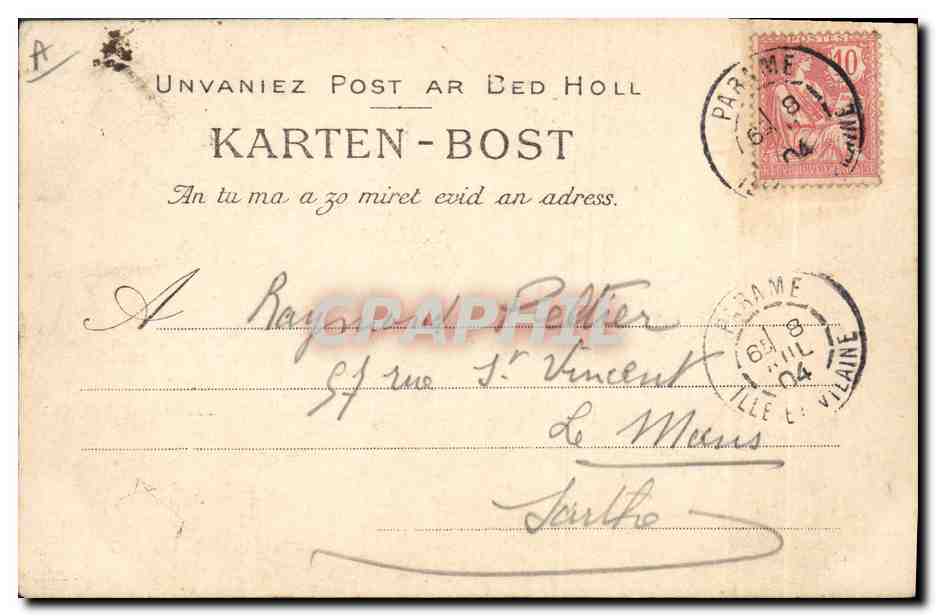 A
UNVANIEZ POST AR BED HOLL
KARTEN-BOST
An tu ma a zo miret evid an adress.
POSTES 10
PARAMÉ
8
04
A Raymond Peltier
CPARHIL
57 rue St Vincent
Le Mans
Sarthe
PARAME
6E 8
JUIL
04
ILLE ET VILAINE